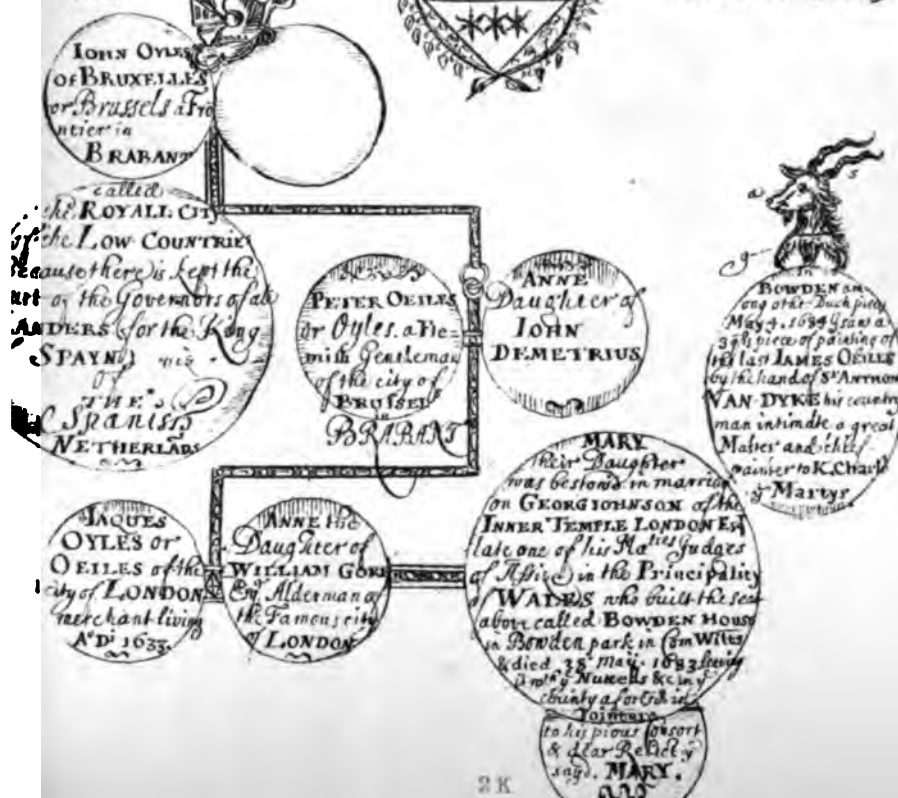 IOHN OYLES
OF BRUXELLES
or Brussels a Fro
ntier in
BRABANT
called
the ROYALL CITY
the LOW COUNTRIES
cause there is kept the
of the Governors of all
ANDERS for the King
SPAYN
of
THE
Spanish
NETHERLANDS
PETER OEILES
or Oyles, a Fle-
mish Gentleman
of the city of
BRUSSELS
in
BRABANT
ANNE
Daughter of
IOHN
DEMETRIUS
a
s
g
In
BOWDEN am
ong other Duch pieces
May 4. 1684 I saw a
piece of painting of
the last IAMES OEILES
by the hand of Sr ANTHON
VAN-DYKE his country
man intimate a great
Master and chief
painter to K. Charls
ye Martyr
IAQUES
OYLES or
OEILES of the
city of LONDON
merchant living
Ao Di 1633.
ANNE the
Daughter of
WILLIAM GORE
Esqr Alderman of
the Famous city
of LONDON
MARY
their Daughter
was bestowd in marriag
on GEORG IOHNSON of the
INNER TEMPLE LONDON Esq
late one of his Maties Judges
of Assise in the Principality
of WALES who built the seat
above called BOWDEN HOUSE
in Bowden park in Com Wilts
& died 28 May. 1683 leaving
county aforesaid in
Jointure,
to his pious Consort
& dear Relict ye
sayd. MARY.
2K